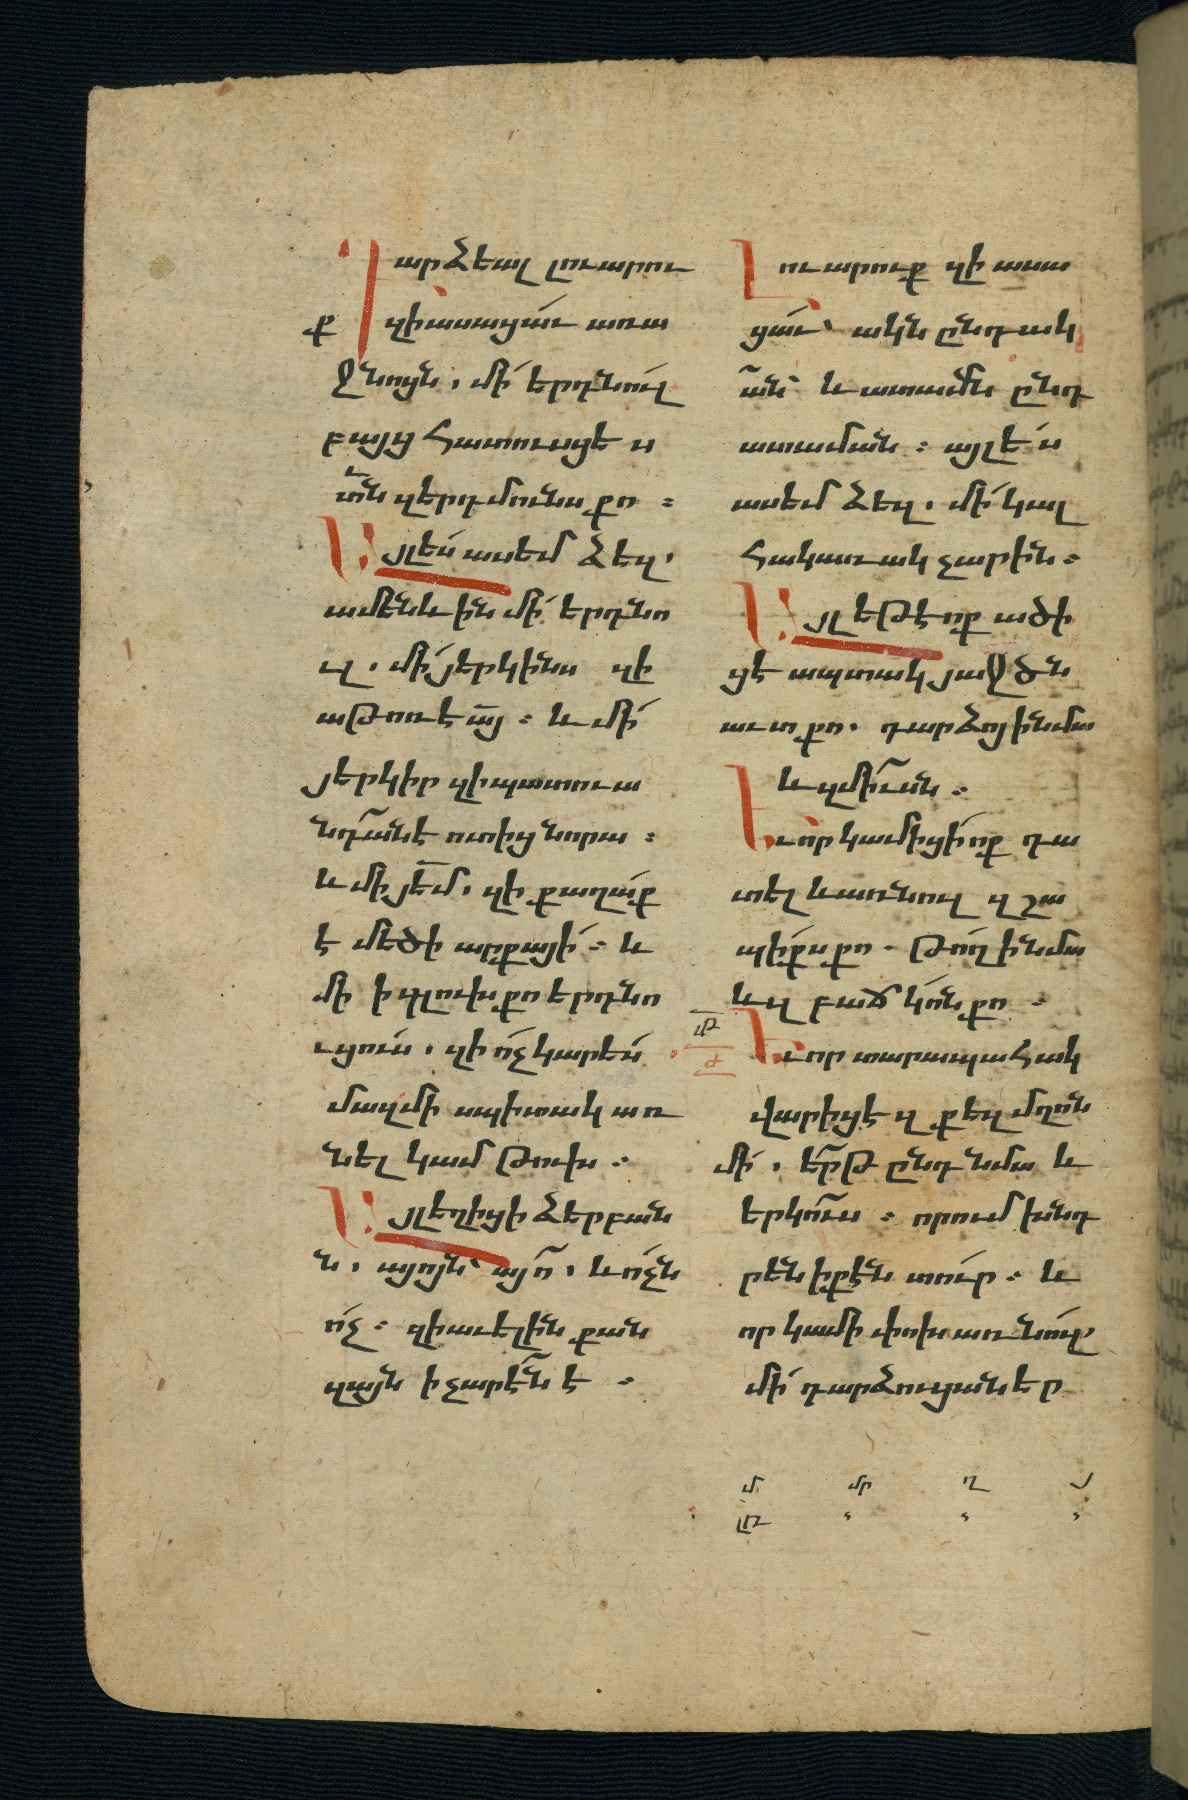 Դարձեալ լուարու
ք զի ասացաւ առա
ջնոյն. մի երդնուլ
բայց հատուսցես
տն զերդմունս քո։
Այլ ես ասեմ ձեզ.
ամենևին մի երդնո
ւլ. մի յերկինս զի
աթոռ է այ։ և մի
յերկիր զի պատուա
նդան է ոտից նորա։
և մի յեմ. զի քաղաք
է մեծի արքայի։ և
մի ի գլուխ քո երդնո
ւցուս. զի ոչ կարես
մազ մի սպիտակ առ
նել կամ թուխ։
Այլ եղիցի ձեր բան
ն. այոյն՝ այո. և ոչն
ոչ։ զի աւելին քան
զայն ի չարէն է։
Լուարուք զի ասա
ցաւ՝ ակն ընդ ակ
ան՝ և ատամն ընդ
ատաման։ այլ ես
ասեմ ձեզ. մի կալ
հակառակ չարին։
Այլ եթե ոք ածի
ցէ ապտակ յաջ ծն
աւտ քո. դարձո ինմա
և զմիւսն։
Եւ որ կամիցի ոք դա
տել և առնուլ զ շա
պիքս քո. թող ինմա
և զ բաճկոն քո։
Եւ որ տարապահակ
վարիցէ զ քեզ մղոն
մի. երթ ընդ նմա և
երկուս։ որում խնդ
րէն ի քէն տուր։ և
որ կամի փոխ առնուլ
մի դարձուցաներ